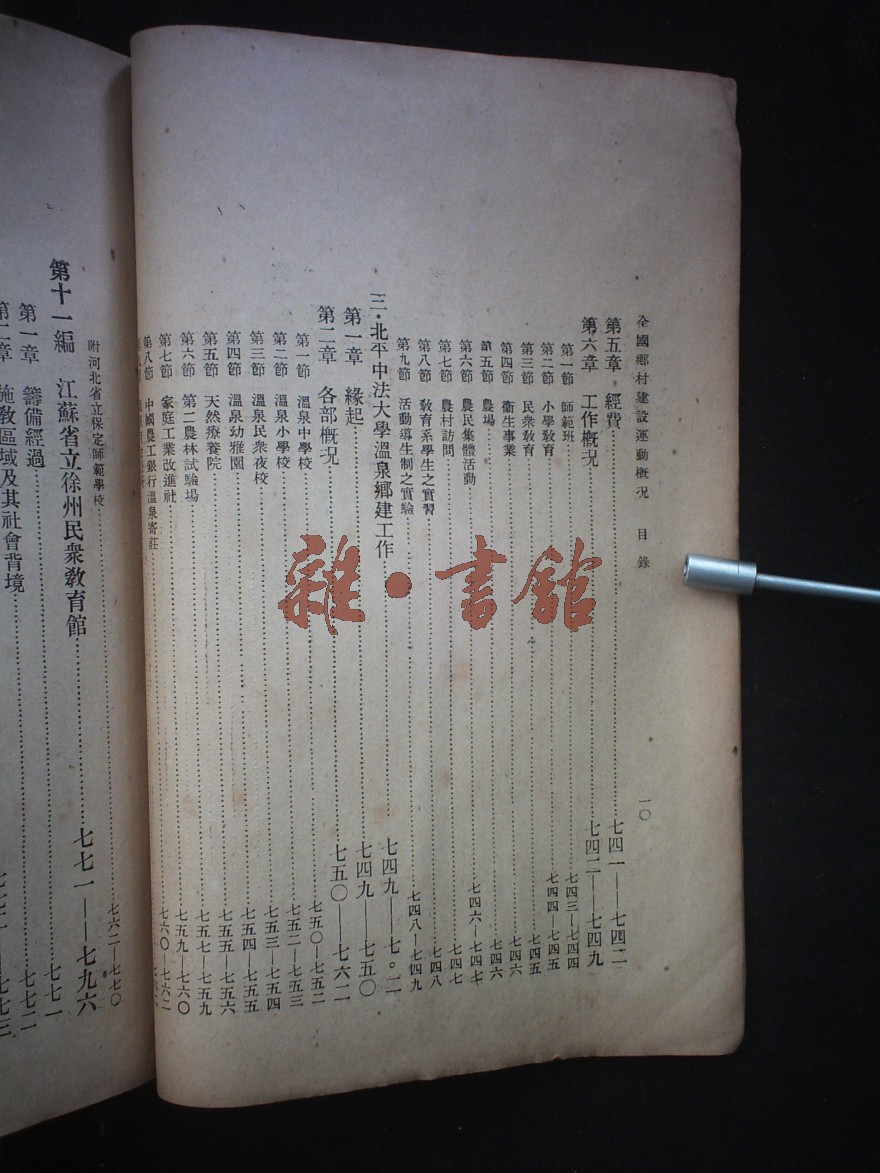 全國鄉村建設運動概況 目錄 一〇
第五章 經費……七四一——七四二
第六章 工作概況……七四二——七四九
第一節 師範班……七四三—七四四
第二節 小學教育……七四四—七四五
第三節 民衆教育……七四五
第四節 衞生事業……七四六
第五節 農場……七四六
第六節 農民集體活動……七四六—七四七
第七節 農村訪問……七四七
第八節 教育系學生之實習……七四八
第九節 活動導生制之實驗……七四八—七四九
三・北平中法大學溫泉鄉建工作……七四九——七。二
第一章 緣起……七四九——七五〇
第二章 各部概況……七五〇——七六二
第一節 溫泉中學校……七五〇—七五二
第二節 溫泉小學校……七五二—七五三
第三節 溫泉民衆夜校……七五三—七五四
第四節 溫泉幼雅園……七五四—七五五
第五節 天然療養院……七五五—七五六
第六節 第二農林試驗場……七五七—七五九
第七節 家庭工業改進社……七五九—七六〇
第八節 中國農工銀行溫泉寄莊……七六〇—七六二
附河北省立保定師範學校……七六二—七七〇
第十一編 江蘇省立徐州民衆教育館……七七一——七九六
第一章 籌備經過……七七一
第二章 施教區域及其社會背境……七七二
雜・書館